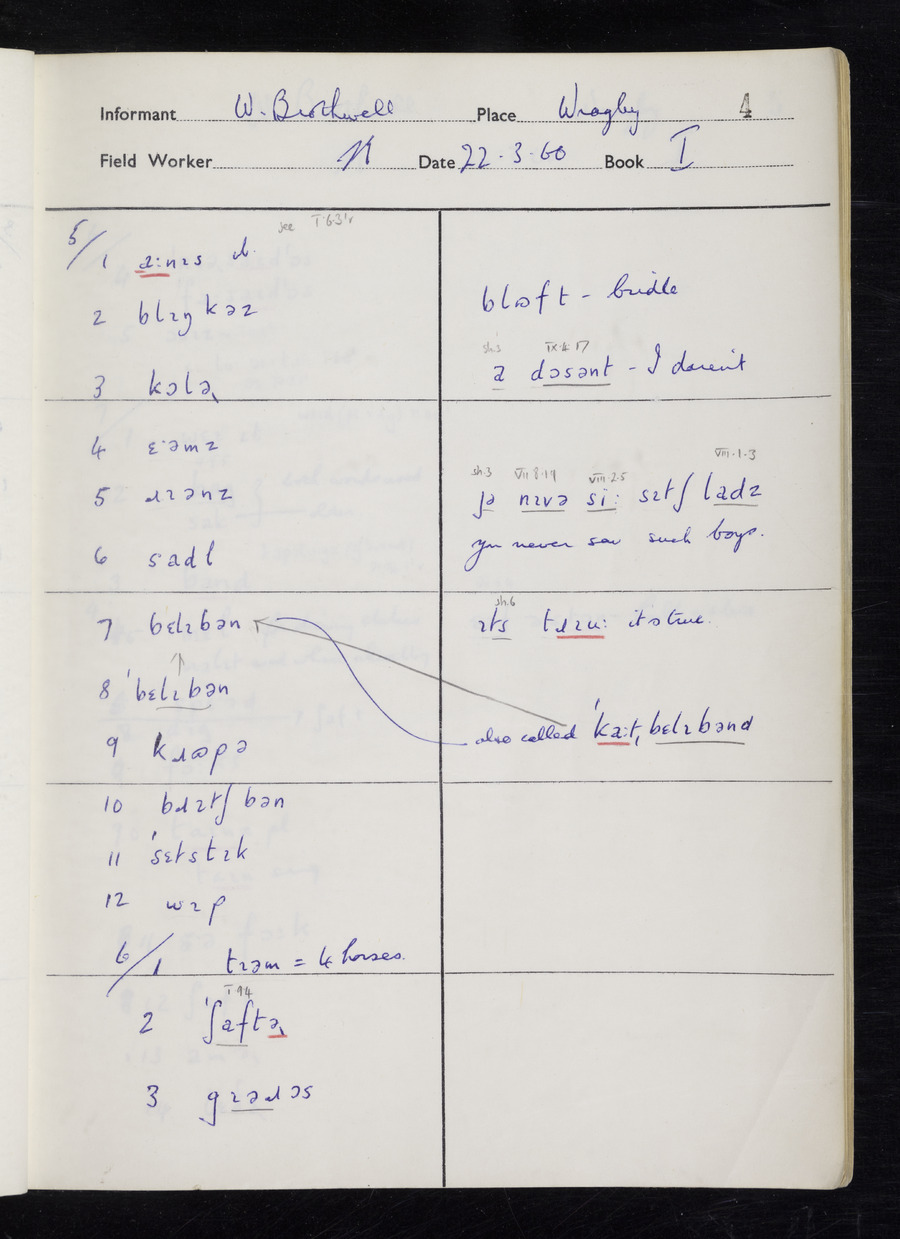 Informant W. Brothwell Place Wragby 4
Field Worker Date 22.3.60 Book I
see I.6.3
5/1 aːnɪs
2 blɪŋkəz
3 kɔlə
4 ɛˑəmz
5 ɹɪənz
6 sadl
7 bɛlɪbən
8 ˈbɛlɪbən
9 kɹɒpə
10 bɹɪtʃbən
11 ˈsɛtstɪk
12 wɪp
6/1 tɪəm = 4 horses.
I 9.4
2 ˈʃaftə
3 gɪəɹəs
blɒft - bridle
sh.5 IX.4.17
a dɔsənt - I daren't
sh.3 VII.8.19 VIII.2.5 VIII.1.3
jə nɪvə siː sɪtʃ ladz
you never saw such boys.
sh.6
ɪts tɹɪuː it's true.
also called ˈkaːtˌbɛlɪbənd